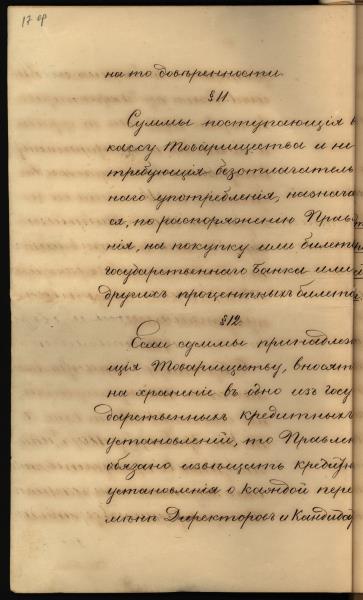 17 об
на то довѣренности.
§ 11.
Суммы поступающія в
кассу Товарищества и не
требующія безотлагатель
наго употребленія, назнача
ся, по распоряженію Прав
нія, на покупку или билето
государственнаго банка или
другихъ процентныхъ билето
§ 12.
Если суммы принадлеж
щія Товариществу, вносят
на храненіе въ одно изъ госу
дарственныхъ кредитныхъ
установленій, то Правлен
обязано извѣщать кредитн
установленія о каждой пере
мѣнѣ Директоровъ и Кандида